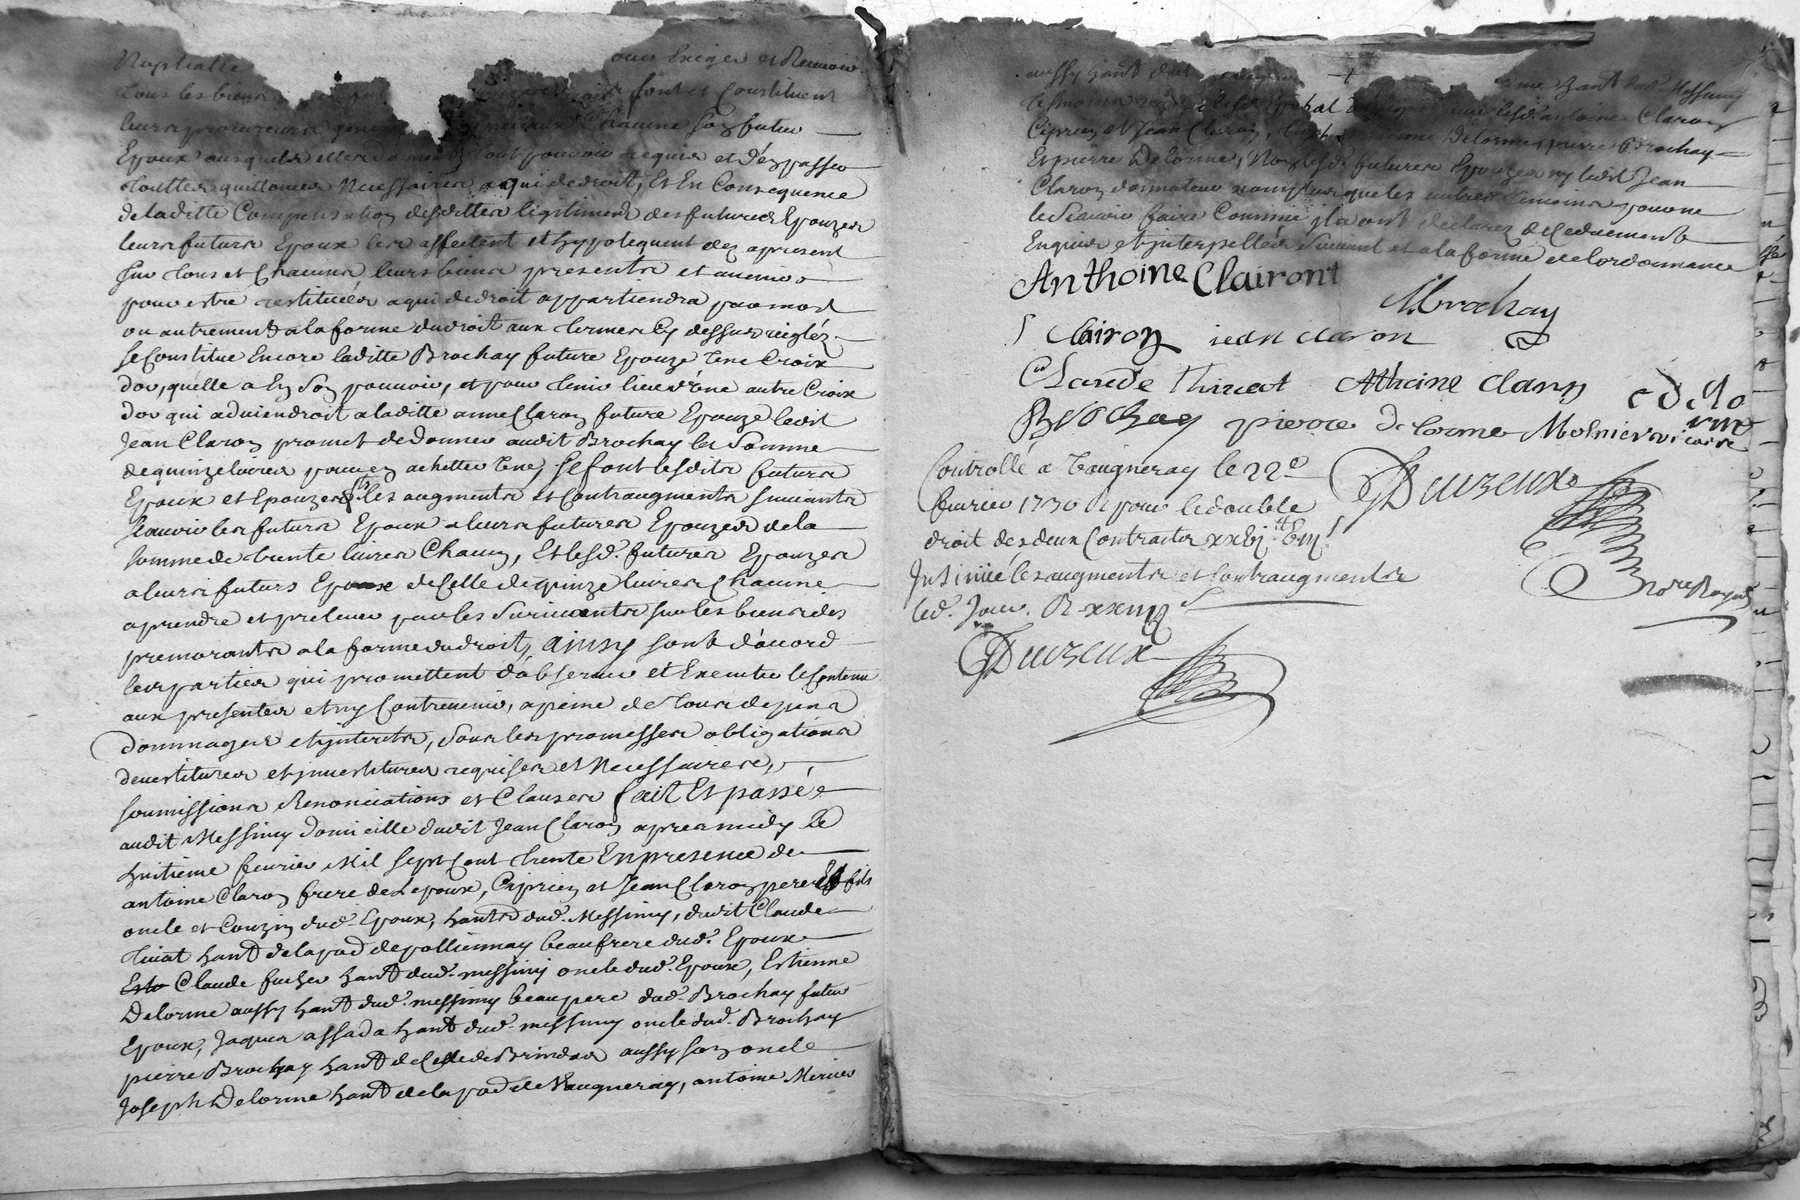 Nuptialle pour Exiger et Recevoir
tous les biens font et Constituent
leurs procureurs Chacune son futur
Epoux ausquels elles tout pouvoir requis et d'en passer
touttes quittances Necessaires a qui de droit, Et En Consequence
de laditte Compensation desdittes legitimes desfutures Epouzes
leurs futurs Epoux les affectent et hypotequent dez apresent
sur tous et Chacuns leurs biens presents et avenir
pour estre restituées a qui de droit appartiendra par mort
ou autrement a la forme du droit aux termes Cy dessus reglés
se Constitue Encore laditte Brochay future Epouze Une Croix
dor, quelle a En Son pouvoir, et pour tenir lieu d'une autre Croix
dor qui adviendroit a laditte anne Claron future Epouze ledit
Jean Claron promet de donner audit Brochay la Somme
de quinze livres pour en achetter Une, se font lesdits futurs
Epoux et Epouzes les augments et Contraugments suivants
scavoir les futurs Epoux a leurs futures Epouzes de la
somme de trente livres Chacun, Et lesd. futures Epouzes
a leurs futurs Epoux de Celle de quinze livres Chacune
a prendre et prelever par les Survivants sur les biens des
premourants a la forme du droit, ainsy sont d'acord
les parties qui promettent d'observer et Executer le Contenu
aux presentes et ny Contrevenir, a peine de tous depens
dommages et interets, sous les promesses obligations
devestitures et investitures requises et Necessaires,
soumissions Renonciations et Clauses fait Et passé
audit Messimy domicille dudit Jean Claron apres midy le
huitieme fevrier Mil sept Cent trente En presence de
antoine Claron frere de Lepoux, Ciprien et Jean Claron pere Et fils
oncle et Couzin dud. Epoux, hants dud. Messimy, dudit Claude
hant de la par de pollionnay beaufrere dud. Epoux
Claude hant dud. messimy oncle dud. Epoux, Estienne
Delorme aussy hant dud. messimy beaupere dud. Brochay futur
Epoux, Jaques assada hant dud. messimy oncle dud. Brochay
pierre Brochay hant de Celle de Brindas aussy son oncle
Joseph Delorme hant de la par de Vaugneray, antoine Mercier
aussy hant hant dud. Messimy
temoins lesd. antoine Claron
Ciprien et Jean Claron, Delorme, pierre Brochay
Et pierre Delorme, Non lesd. futures Epouzes ny ledit Jean
Claron donnateur non plus que les autres temoins pour ne
le Scavoir faire Comme ils ont declarez de Ce duement
Enquis et interpellés Suivant et a la forme de lordonnance
Anthoine Clairont
M. Brochay
C Clairon jean claron
Claude Thivent Athoine Claron
Brochay pierre Delorme
Controllé a Vaugneray le 22e
fevrier 1730 R pour le double
droit des deux Contractes xxvj
Insinué les augments et Contraugments
led. Jour. R
Duvzeux
Duvzeux
Nore Royal